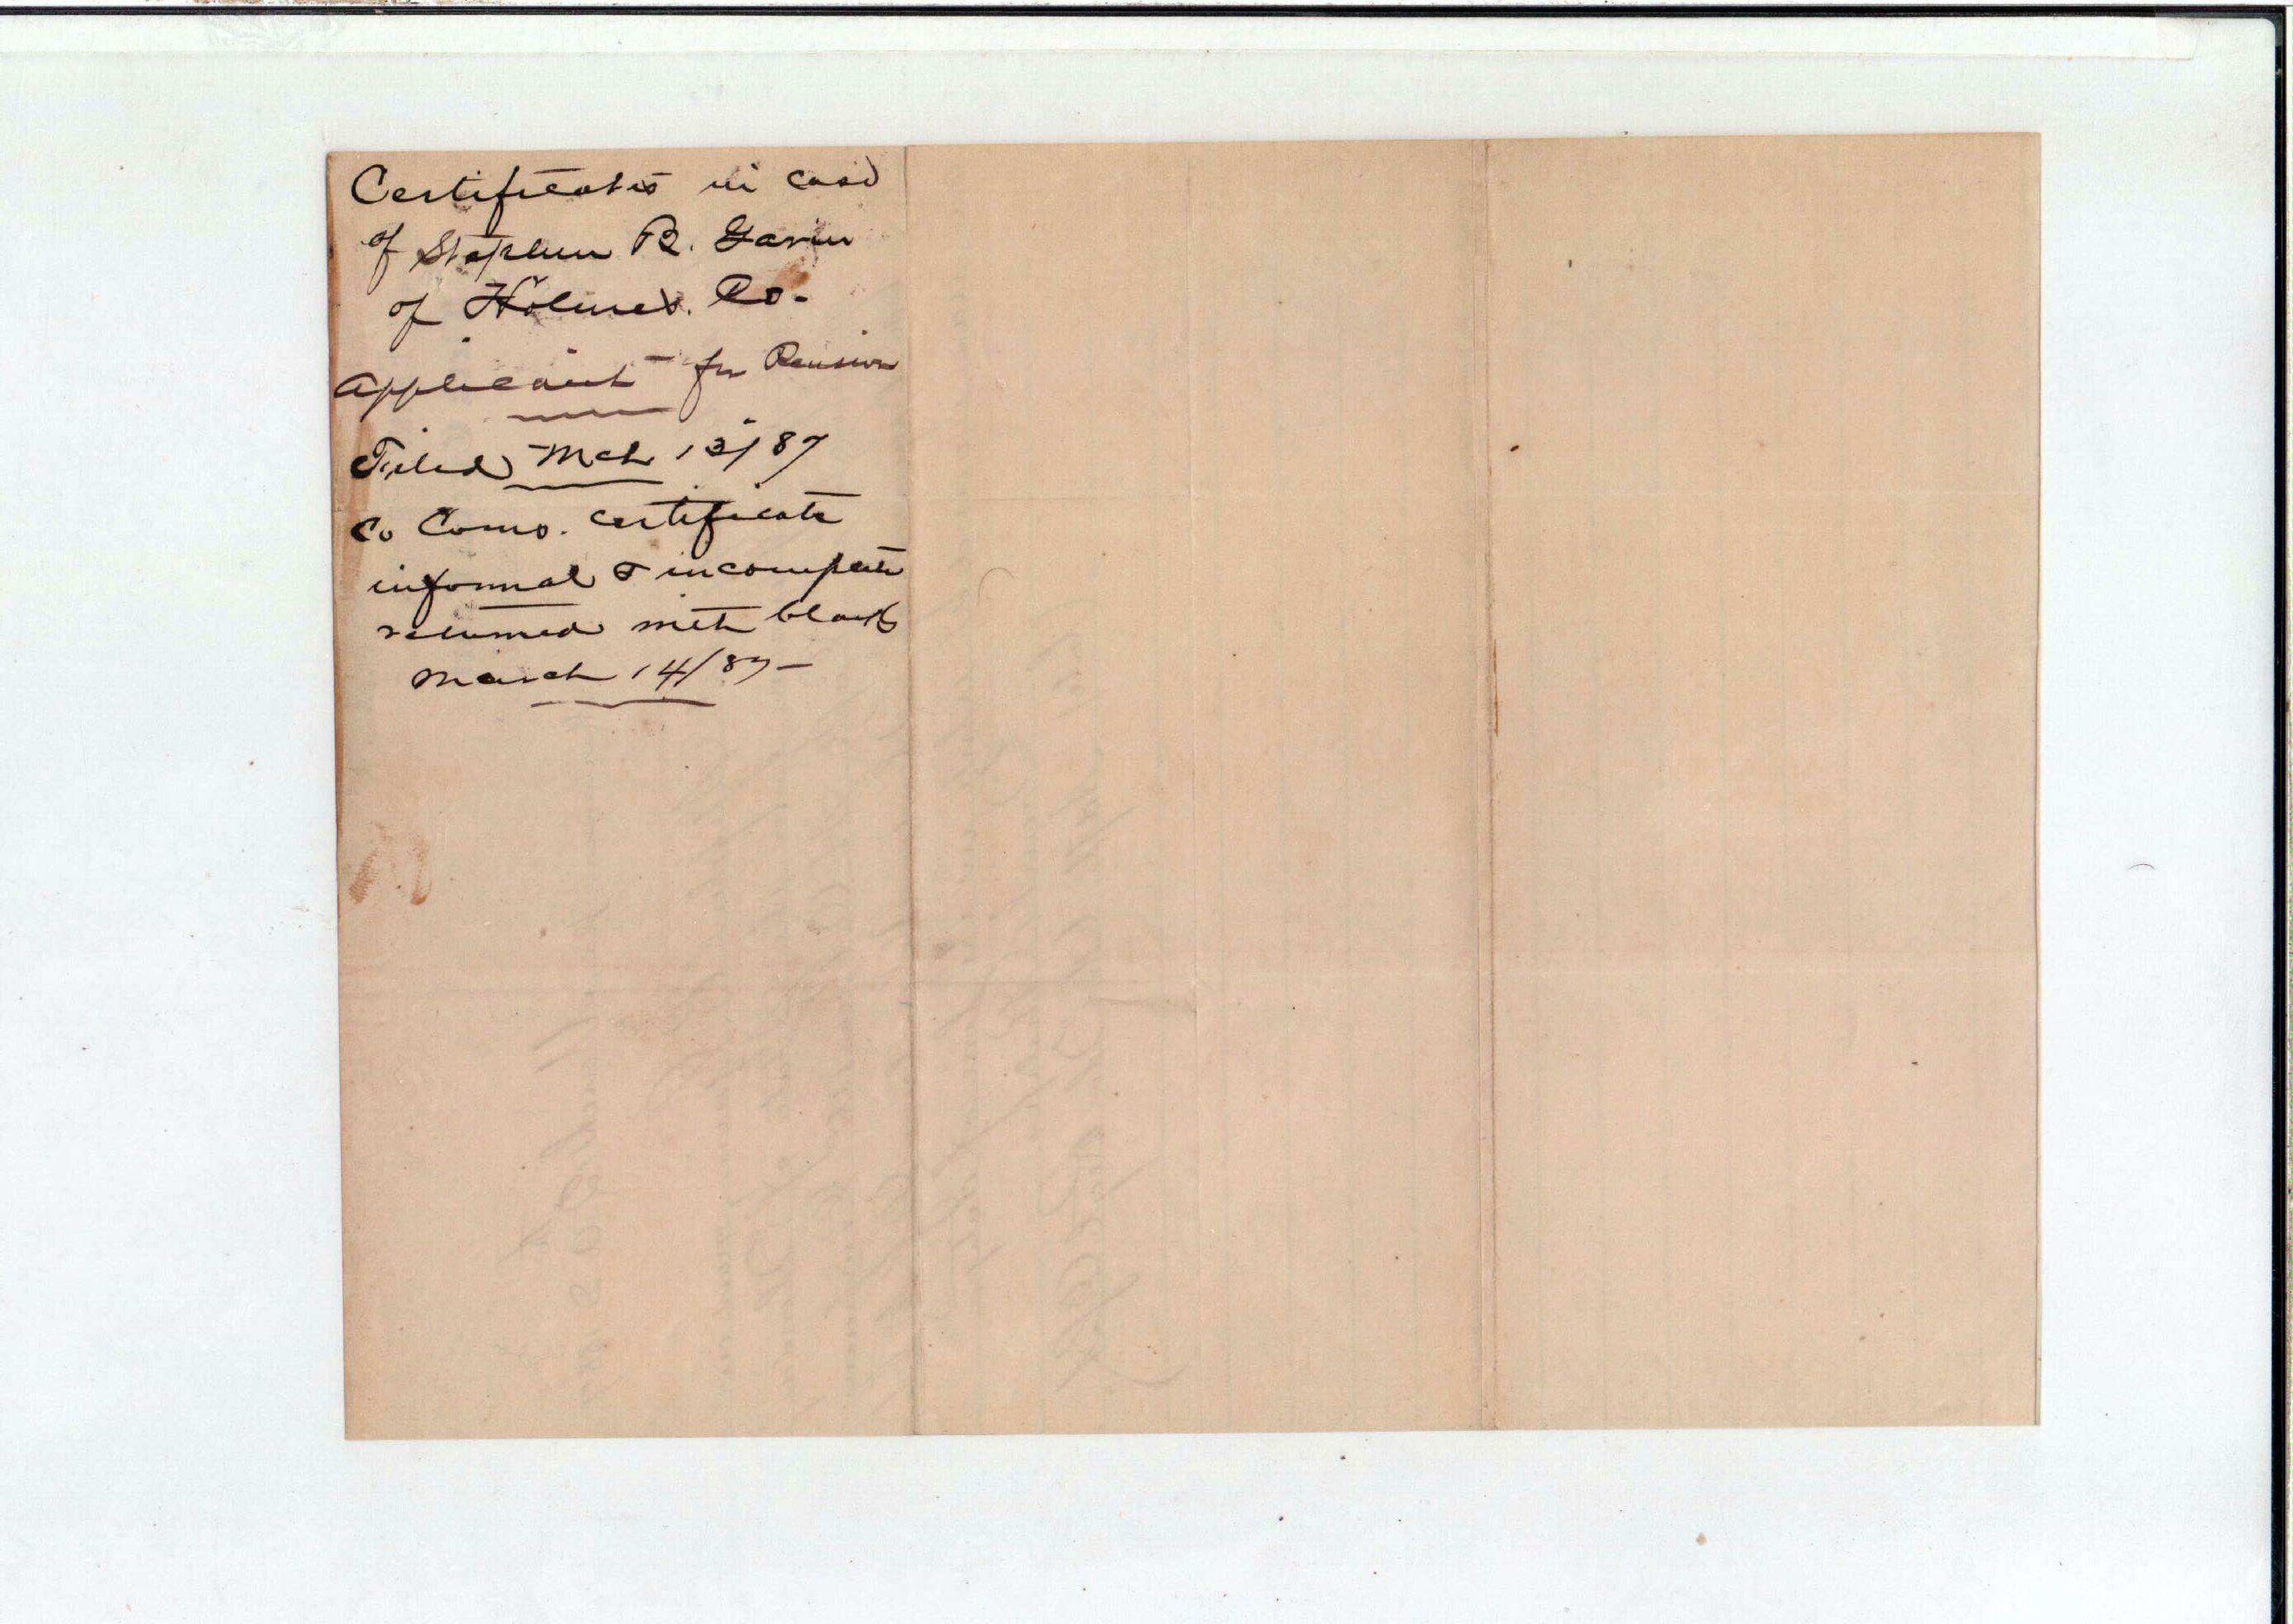 Certificates in case
of Stephen R. Gavin
of Holmes. Co.
Applicant for Pension
Filed Mch 13/87
Co Coms. Certificate
informal & incomplete
returned with blank
March 14/87 -